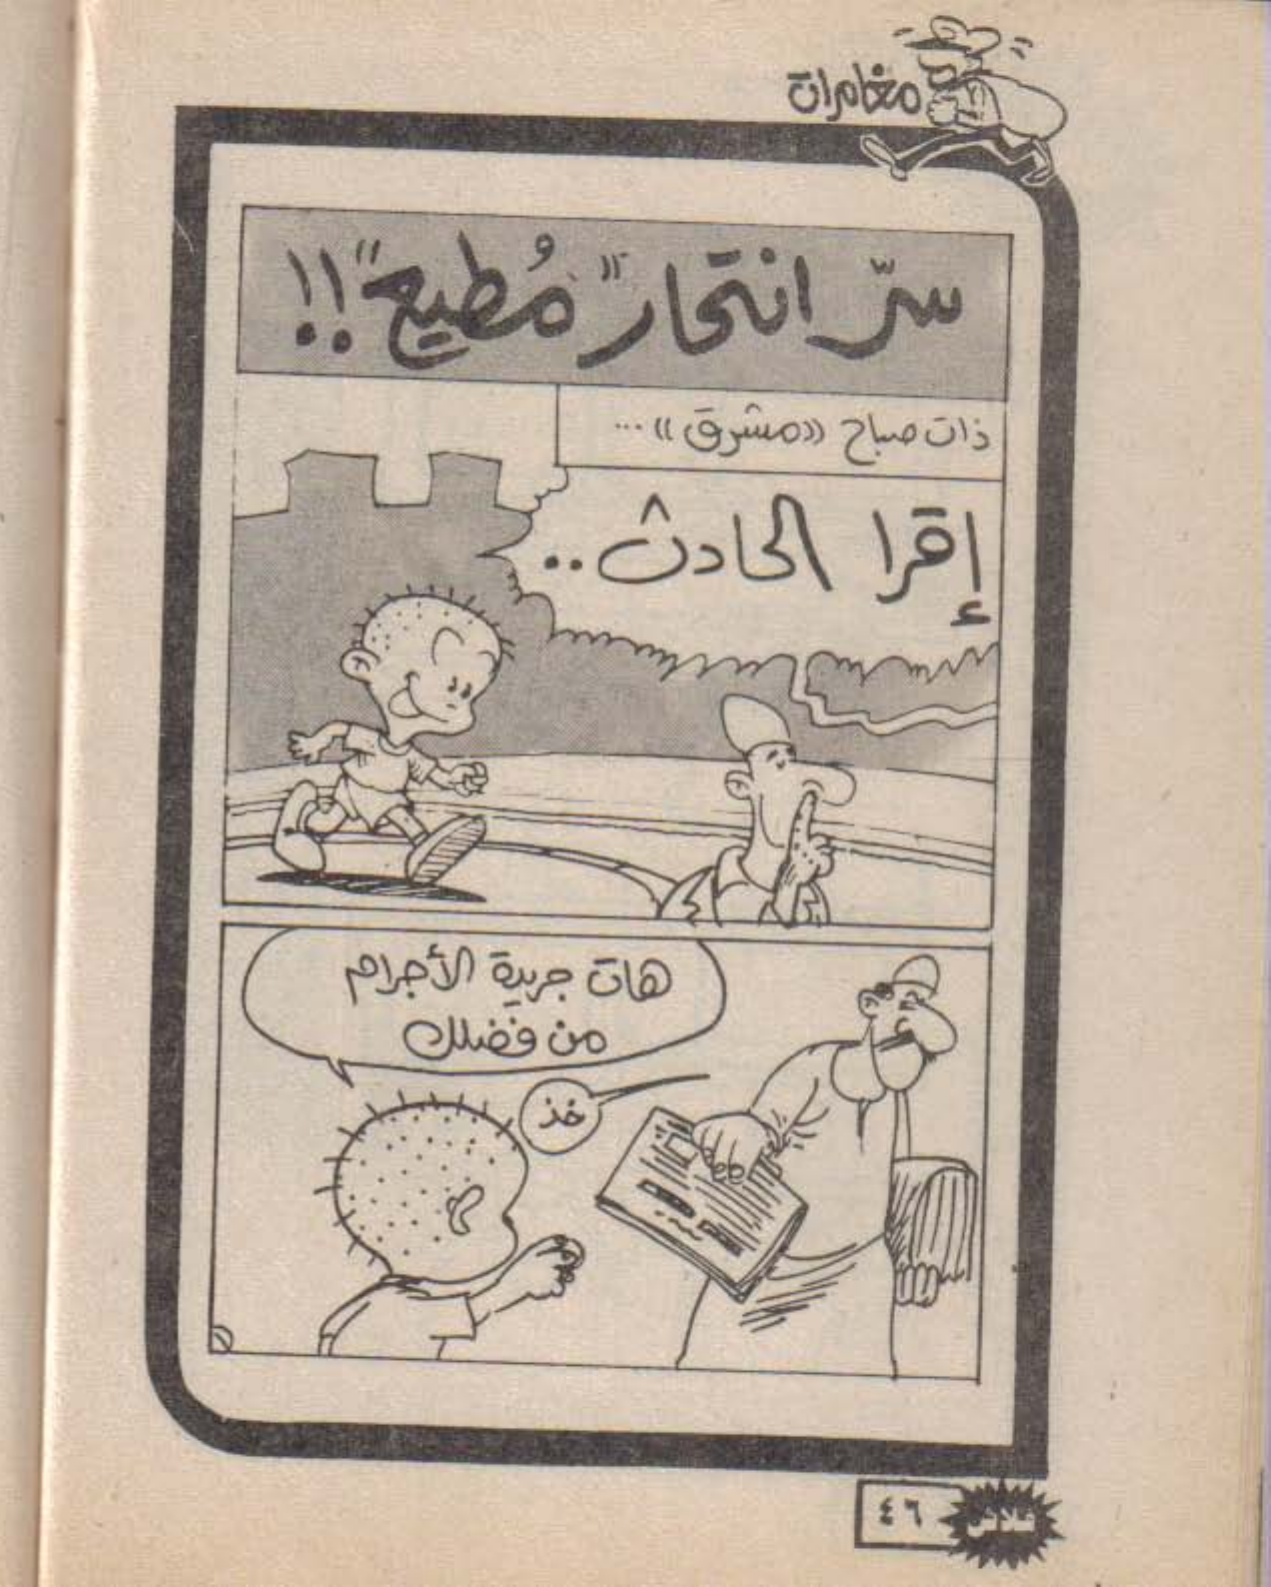 مغامرات
سرّ انتحار "مُطيع"!!
ذات صباح «مشرق» ...
إقرا الحادث..
هات جريدة الأجرام
من فضلك
خذ
٤٦
فلاش